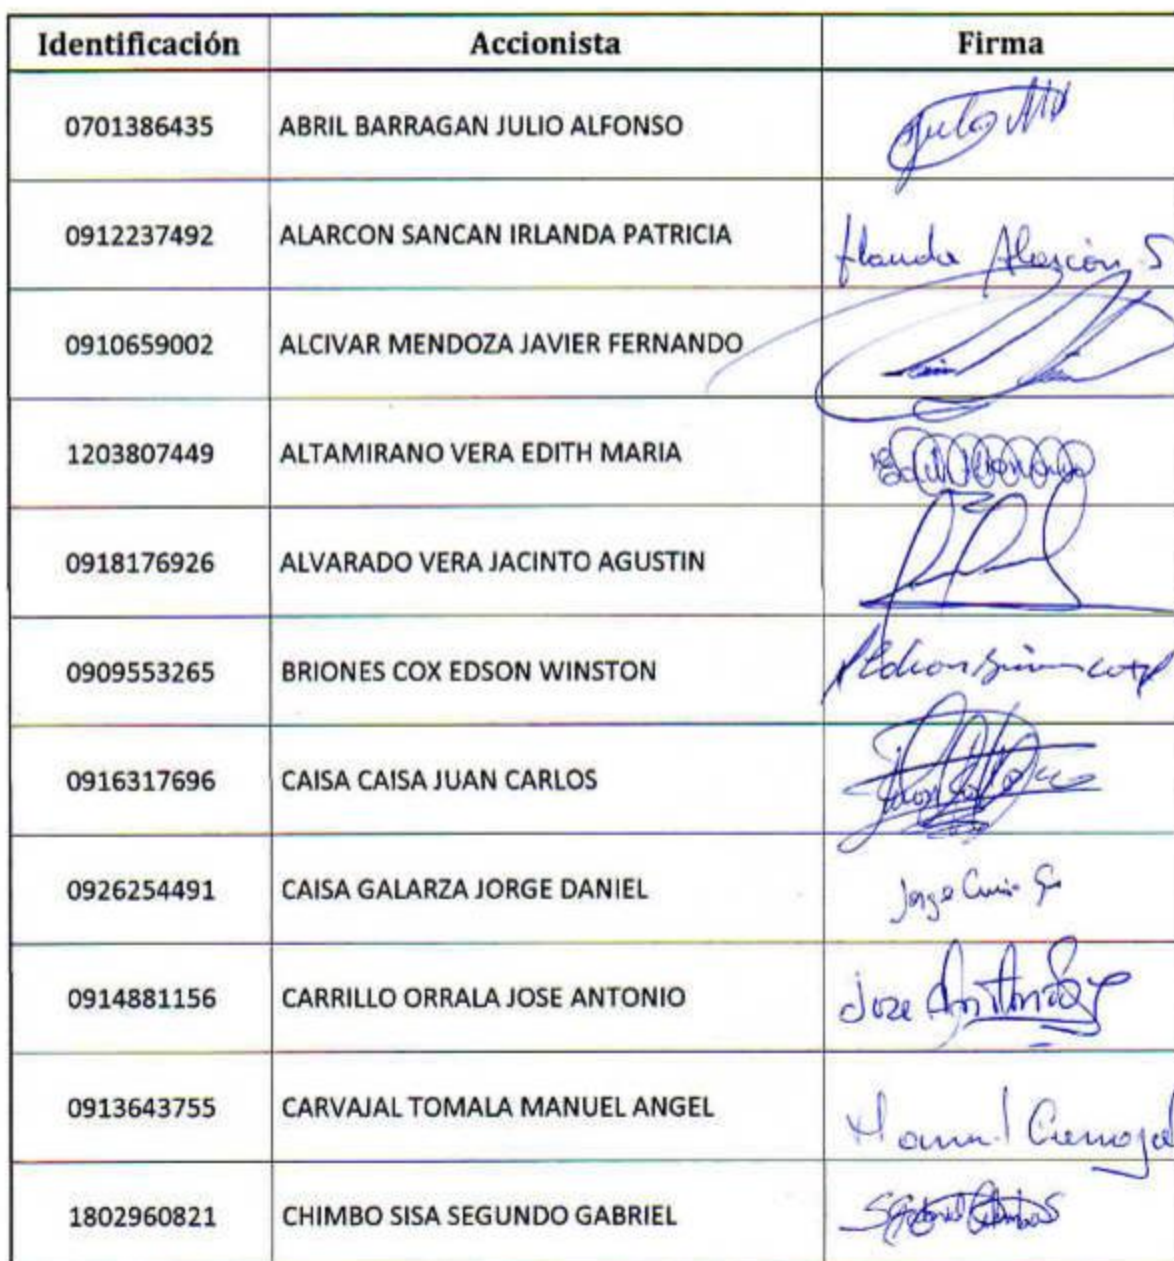 Identificación Accionista Firma
0701386435 ABRIL BARRAGAN JULIO ALFONSO Julio
0912237492 ALARCON SANCAN IRLANDA PATRICIA Alarcón S
0910659002 ALCIVAR MENDOZA JAVIER FERNANDO
1203807449 ALTAMIRANO VERA EDITH MARIA
0918176926 ALVARADO VERA JACINTO AGUSTIN
0909553265 BRIONES COX EDSON WINSTON
0916317696 CAISA CAISA JUAN CARLOS
0926254491 CAISA GALARZA JORGE DANIEL Jorge
0914881156 CARRILLO ORRALA JOSE ANTONIO Jose Antonio
0913643755 CARVAJAL TOMALA MANUEL ANGEL
1802960821 CHIMBO SISA SEGUNDO GABRIEL